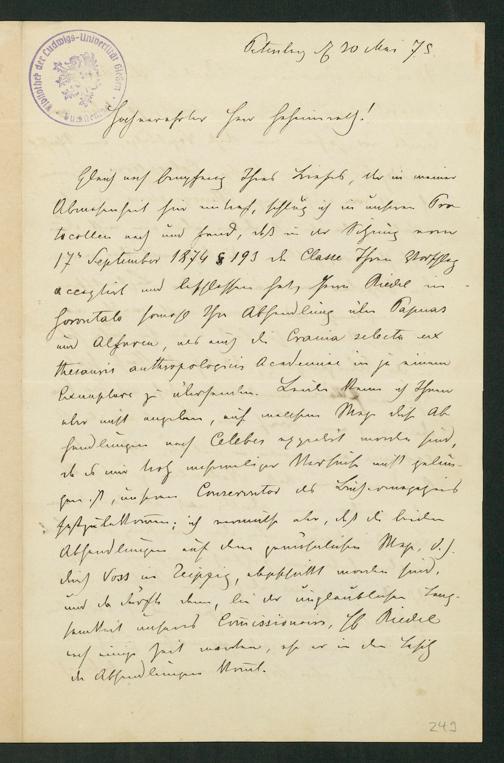 Bibliothek der Ludwigs-Universität Giessen
Petersburg 20 Mai 75.
Hochverehrter Herr Geheimrath!
Gleich nach Empfang Ihres Briefes, der in meiner
Abwesenheit hier eintraf, schlug ich in unseren Pro-
tocollen nach und fand, daß in der Sitzung vom
17ten September 1874 § 193 die Classe Ihren Vorschlag
acceptirt und beschlossen hat, Herrn Riedel in
Gorontalo sowohl Ihre Abhandlung über Papuas
und Alfuren, als auch die Crania selecta ex
thesauris anthropologicis Academiae in je einem
Exemplare zu übersenden. Leider kann ich Ihnen
aber nicht angeben, auf welchem Wege diese Ab-
handlungen nach Celebes expedirt worden sind,
da es mir trotz mehrmaliger Versuche nicht gelun-
gen ist, unseren Conservator des Büchermagazins
festzubekommen; ich vermuthe aber, daß die beiden
Abhandlungen auf dem gewöhnlichen Wege, d. h.
durch Voss in Leipzig, abgeschickt worden sind,
und da dürfte denn, bei der unglaublichen Lang-
samkeit unseres Comissionairs, H Riedel
noch einige Zeit warten, ehe er in den Besitz
der Abhandlungen kömmt.
249